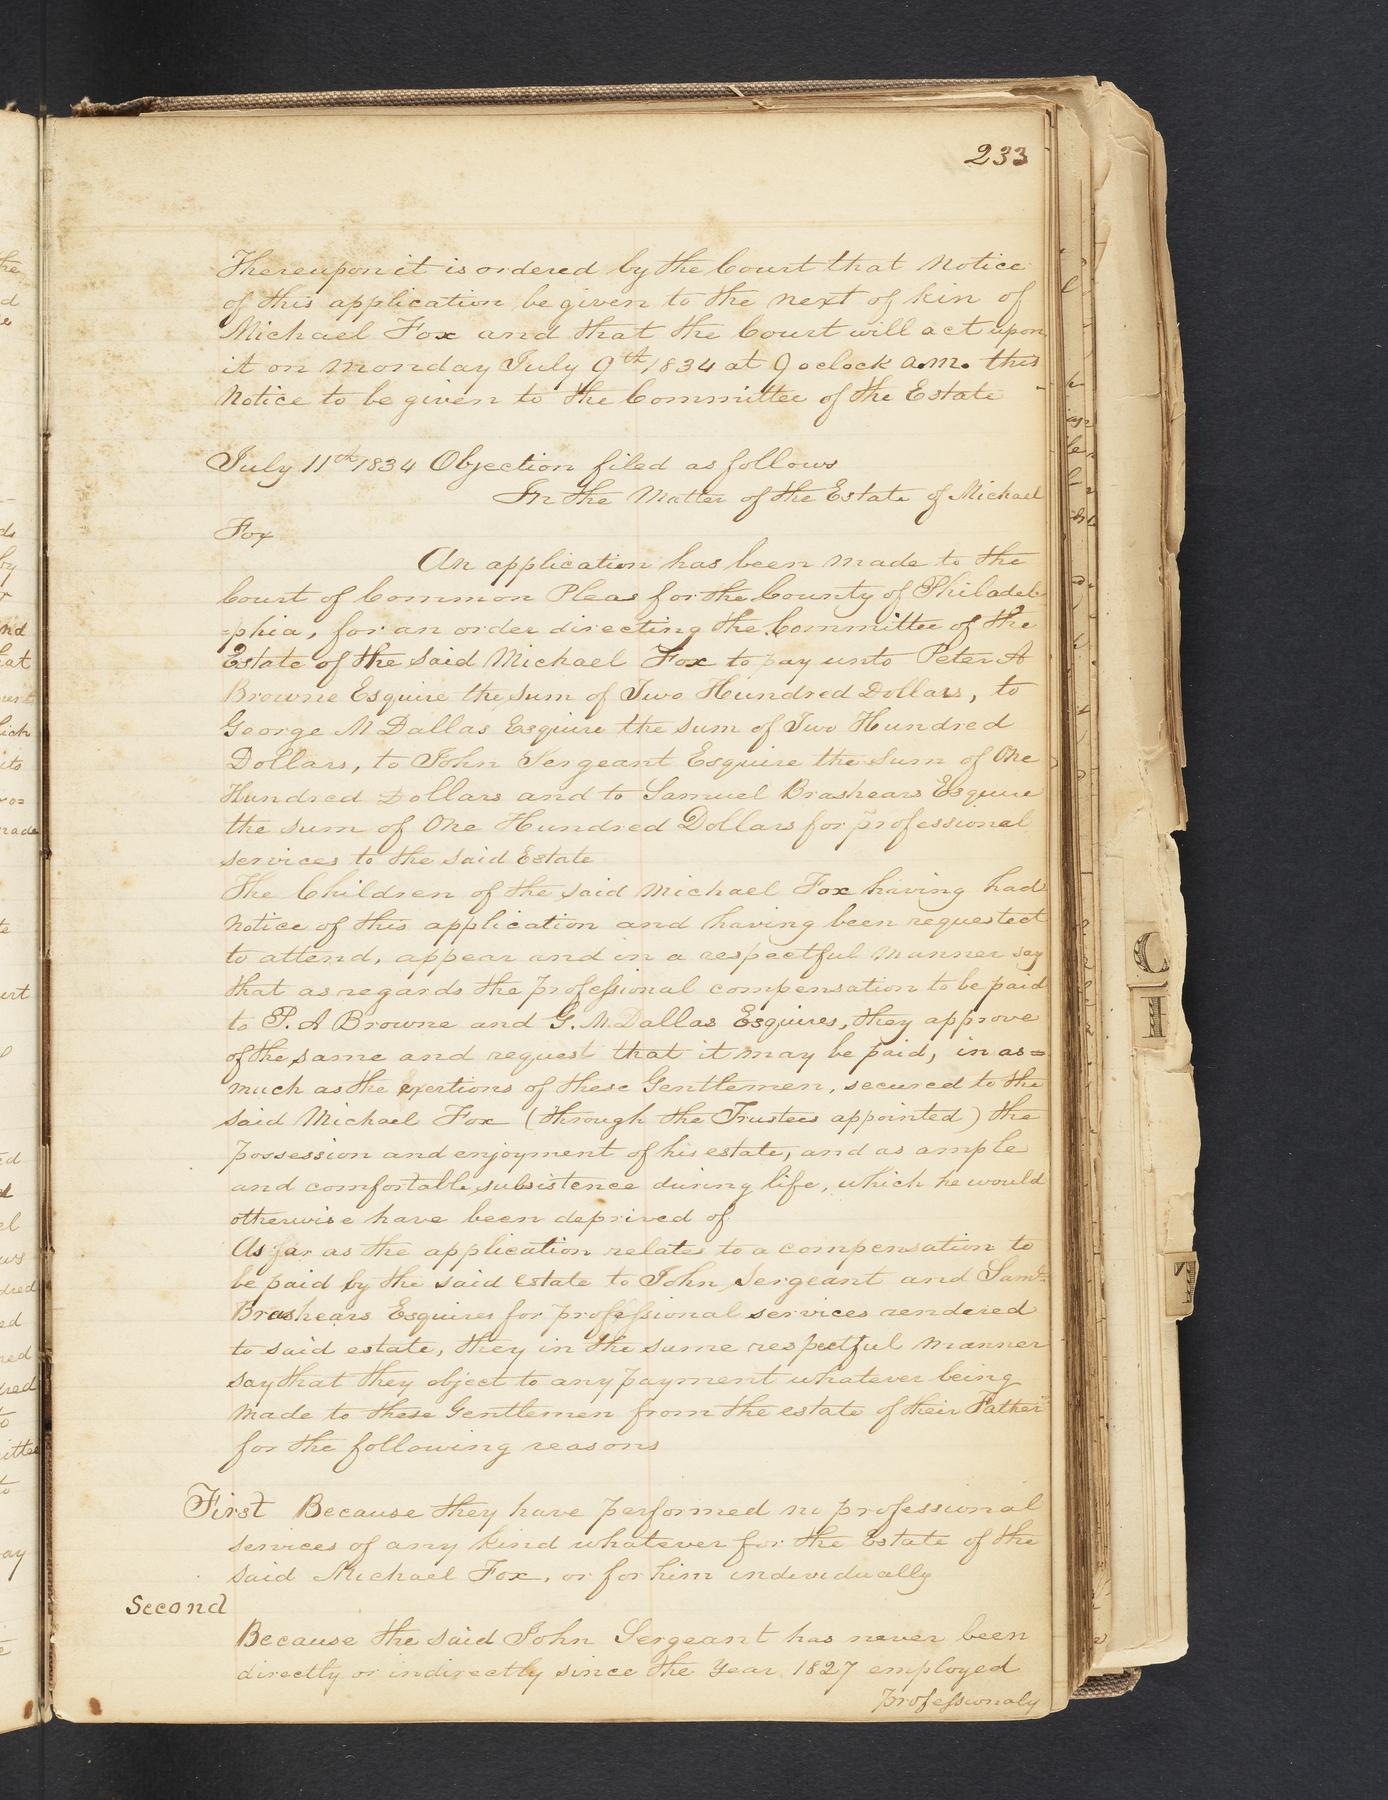 233
Thereupon it is ordered by the Court that Notice
of this application be given to the next of kin of
Michael Fox and that the Court will act upon
it on Monday July 9th 1834 at 9 oclock a.m. this
Notice to be given to the Committee of the Estate
July 11th 1834 Objection filed as follows
In the Matter of the Estate of Michael
Fox
An application has been made to the
Court of Common Pleas for the County of Philadel-
-phia, for an order directing the Committee of the
Estate of the said Michael Fox to pay unto Peter A
Browne Esquire the sum of Two Hundred Dollars, to
George M Dallas Esquire the sum of Two Hundred
Dollars, to John Sergeant Esquire the Sum of One
Hundred Dollars and to Samuel Brashears Esquire
the sum of One Hundred Dollars for professional
services to the said Estate
The Children of the said Michael Fox having had
Notice of this application and having been requested
to attend, appear and in a respectful manner say
that as regards the professional compensation to be paid
to P. A Browne and G. M. Dallas Esquires, they approve
of the same and request that it may be paid, in as=
much as the exertions of these Gentlemen, secured to the
said Michael Fox (through the Trustees appointed) the
possession and enjoyment of his estate, and as ample
and comfortable subsistence during life, which he would
otherwise have been deprived of
As far as the application relates to a compensation to
be paid by the said Estate to John Sergeant and Saml.
Brashears Esquires for professional services rendered
to said estate, they in the same respectful manner
say that they object to any payment whatever being
made to these Gentlemen from the estate of their Father
for the following reasons
First Because they have performed no professional
services of any kind whatever for the Estate of the
said Michael Fox, or for him individually
Second
Because the said John Sergeant has never been
directly or indirectly since the year 1827 employed
professionaly